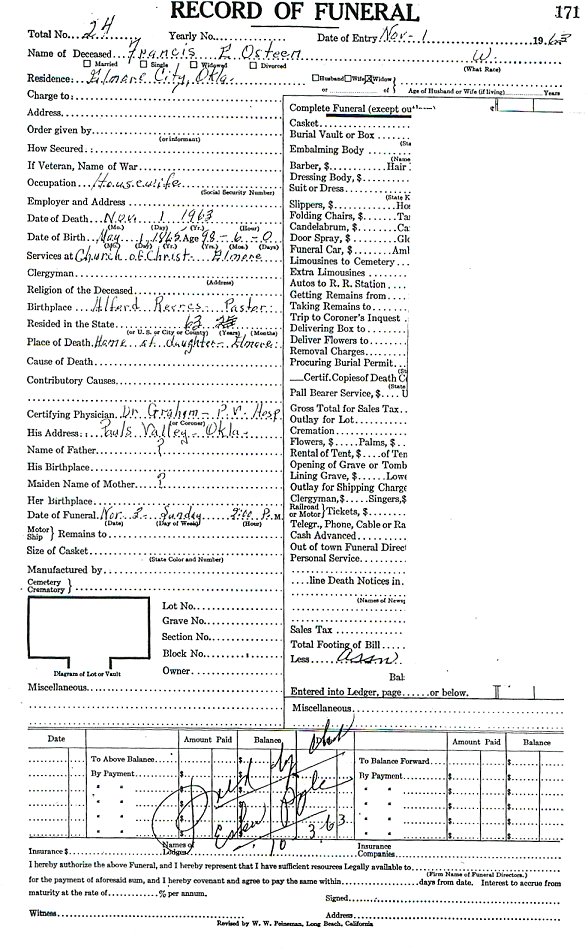 RECORD OF FUNERAL 171
Total No. 24 Yearly No. Date of Entry Nov - 1 1963
Name of Deceased Francis E Osteen W.
Married Single Widowed Divorced (What Race)
Residence: Elmore City, Okla. Husband Wife Widow or of Age of Husband or Wife (if living) Years
Charge to:
Address
Order given by
(or informant)
How Secured
If Veteran, Name of War
Occupation Housewife
(Social Security Number)
Employer and Address
Date of Death Nov 1 1963
(Mo.) (Day) (Yr.) (Hour)
Date of Birth May 1 1865 Age 98 - 6 - 0
(Mo.) (Day) (Yr.) (Yrs.) (Mos.) (Days)
Services at Church of Christ - Elmore
(Address)
Clergyman
Religion of the Deceased
Birthplace Alferd Reeves - Pastor
Resided in the State 63
(or U. S. or City or County) (Years) (Months)
Place of Death Home of daughter - Elmore
Cause of Death
Contributory Causes
Certifying Physician Dr Graham - P.V. Hosp
(or Coroner)
His Address: Pauls Valley - Okla -
Name of Father ?
His Birthplace
Maiden Name of Mother ?
Her Birthplace
Date of Funeral Nov. 3 - Sunday 2:00 P. M.
(Date) (Day of Week) (Hour)
Motor Ship Remains to
Size of Casket
(State Color and Number)
Manufactured by
Cemetery Crematory
Lot No.
Grave No.
Section No.
Block No.
Owner
Diagram of Lot or Vault
Miscellaneous
Complete Funeral (except ou
Casket
Burial Vault or Box
(Sta
Embalming Body
(Name
Barber, $ Hair
Dressing Body, $
Suit or Dress
(State K
Slippers, $ Ho
Folding Chairs, $ Ta
Candelabrum, $ Ca
Door Spray, $ Glo
Funeral Car, $ Aml
Limousines to Cemetery
Extra Limousines
Autos to R. R. Station
Getting Remains from
Taking Remains to
Trip to Coroner's Inquest
Delivering Box to
Deliver Flowers to
Removal Charges
(St
Procuring Burial Permit
Certif. Copies of Death C
(State
Pall Bearer Service, $ U
Gross Total for Sales Tax
Outlay for Lot
Cremation
Flowers, $ Palms, $
Rental of Tent, $ of Ten
Opening of Grave or Tomb
Lining Grave, $ Lowe
Outlay for Shipping Charge
Clergyman, $ Singers, $
Railroad or Motor Tickets, $
Telegr., Phone, Cable or Ra
Cash Advanced
Out of town Funeral Direc
Personal Service
line Death Notices in
(Names of News
Sales Tax
Total Footing of Bill
Less Assn
Bal
Entered into Ledger, page or below.
Miscellaneous
Date Amount Paid Balance Amount Paid Balance
To Above Balance $ $ To Balance Forward $
By Payment $ By Payment $
" " $ " " $
" " $ " " $
" " $ " " $
" " $ " " $
10 3 63
Insurance $ Names of Lodges Insurance Companies
I hereby authorize the above Funeral, and I hereby represent that I have sufficient resources Legally available to
(Firm Name of Funeral Directors.)
for the payment of aforesaid sum, and I hereby covenant and agree to pay the same within days from date. Interest to accrue from
maturity at the rate of % per annum. Signed
Witness Address
Revised by W. W. Feineman, Long Beach, California